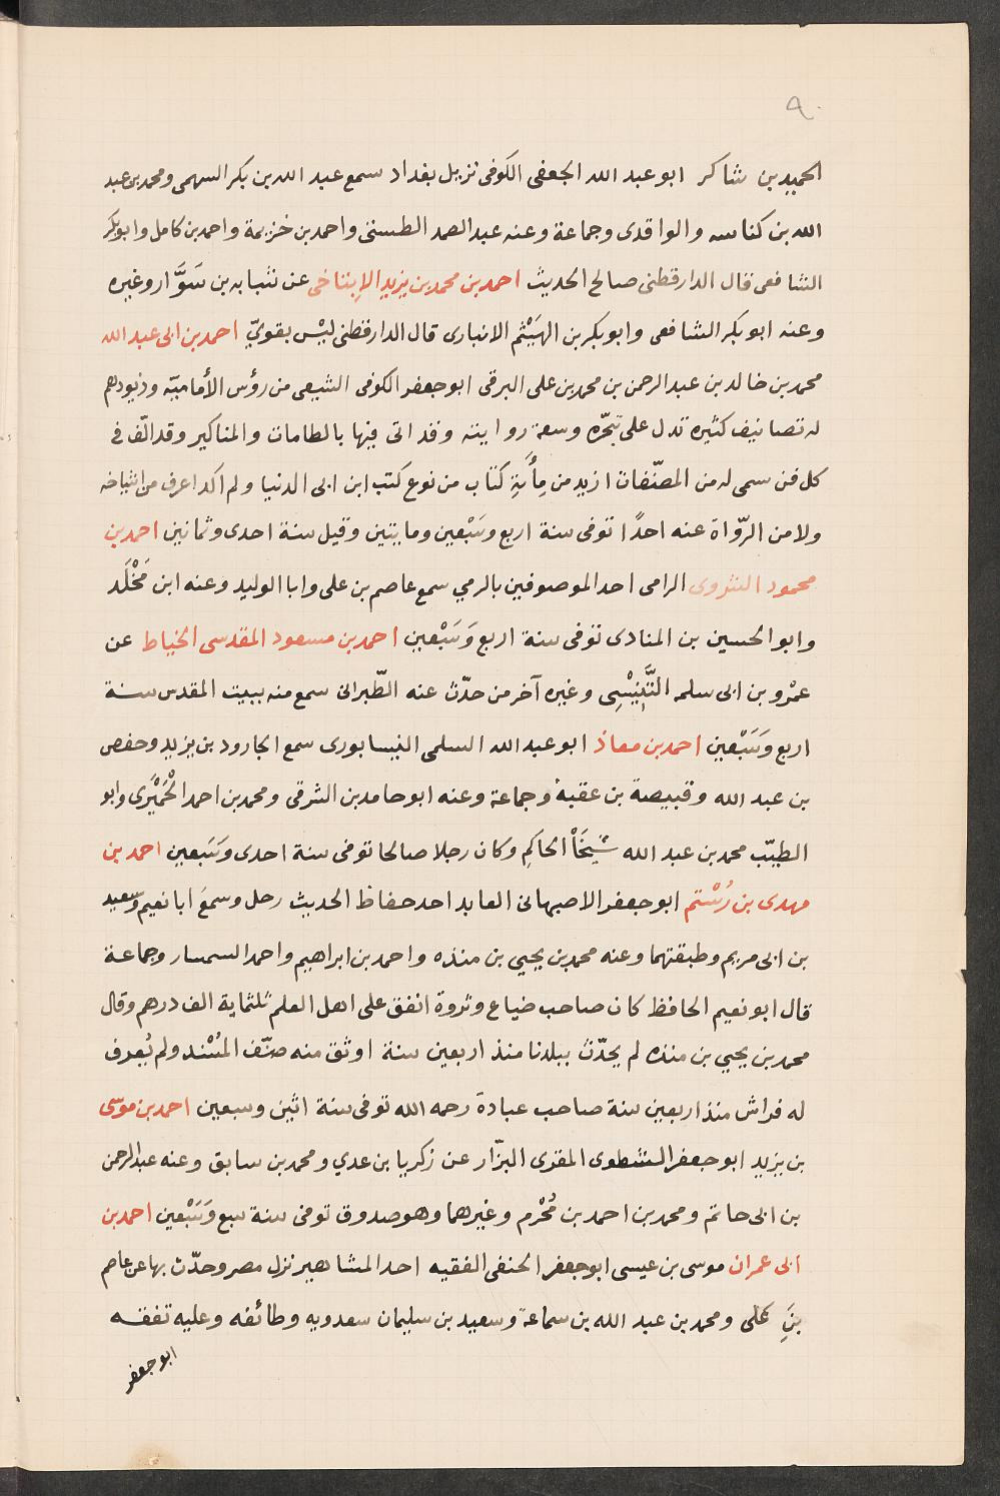 ٩٠
الحميد بن شاكر ابو عبد الله الجعفى الكوفى نزيل بغداد سمع عبد الله بن بكر السهمى ومحمد بن عبد
الله بن كناسه والواقدى وجماعة وعنه عبد الصمد الطستى واحمد بن خزيمة واحمد بن كامل وابو بكر
الشافعى قال الدارقطنى صالح الحديث احمد بن محمد بن يزيد الإيتاخى عن شبابه بن سَوَّار وغيره
وعنه ابو بكر الشافعى وابو بكر بن الهَيْثم الانبارى قال الدارقطنى ليْس بقويّ احمد بن ابى عبد الله
محمد بن خالد بن عبد الرحمن بن محمد بن على البرقى ابو جعفر الكوفى الشيعى من رؤس الأماميّه وذيودهم
له تصانيف كثيره تدل على تبحّره وسعة روايته وقد اتى فيها بالطامات والمناكير وقد الّف فى
كل فن سمى له من المصنّفات ازيد من مِأَيةِ كتاب من نوع كتب ابن ابى الدنيا ولم اكد اعرف من اشياخه
ولا من الرّواة عنه احدًا توفى سنة اربع وسَبْعين ومايتين وقيل سنة احدى وثمانين احمد بن
محمود الشروى الرامى احد الموصوفين بالرمي سمع عاصم بن على وابا الوليد وعنه ابن مَخْلَد
وابو الحسين بن المنادى توفى سنة اربع وَسَبْعين احمد بن مسعود المقدسى الخياط عن
عمْرو بن ابى سلمه التَّنِيْسِى وغيره آخر من حدّث عنه الطّبرانى سمع منه ببيت المقدس سنة
اربع وَسَبْعين احمد بن معاذ ابو عبد الله السلمى النيسابورى سمع الجارود بن يزيد وحفص
بن عبد الله وقبيصة بن عقبة وجماعة وعنه ابو حامد بن الشرقى ومحمد بن احمد الْحَمْيَرى وابو
الطيّب محمد بن عبد الله شَيخَاْ الحاكِمِ وكان رجلا صالحا توفى سنة احدى وسَبعين احمد بن
مهدى بن رُسْتم ابو جعفر الاصبهانى العابد احد حفاظ الحديث رحل وسمعَ ابا نعيم وسعيد
بن ابى مريم وطبقتهما وعنه محمد بن يحيي بن منذه واحمد بن ابراهيم واحمد السمسار وجماعة
قال ابو نعيم الحافظ كان صاحب ضياع وثروة انفق على اهل العلم ثلثماية الف درهم وقال
محمد بن يحيي بن منذه لم يحدّث ببلدنا منذ اربعين سنة اوثق منه صنّف المسْند ولم يُعرف
له فراش منذ اربعين سنة صاحب عبادة رحمه الله توفى سنة اثنين وسبعين احمد بن موسى
بن يزيد ابو جعفر الشطوى المقرى البزّار عن زكريا بن عدي ومحمد بن سابق وعنه عبد الرحمن
بن ابى حاتم ومحمد بن احمد بن مُخْرم وغيرهما وهو صدوق توفى سنة سبع وَسَبْعين احمد بن
ابى عمران موسى بن عيسى ابو جعفر الحنفى الفقيه احد المشاهير نزل مصر وحدّث بها عن عاصم
بنِ على ومحمد بن عبد الله بن سماعة وسعيد بن سليمان سعدويه وطائفه وعليه تفقه
ابو جعفر